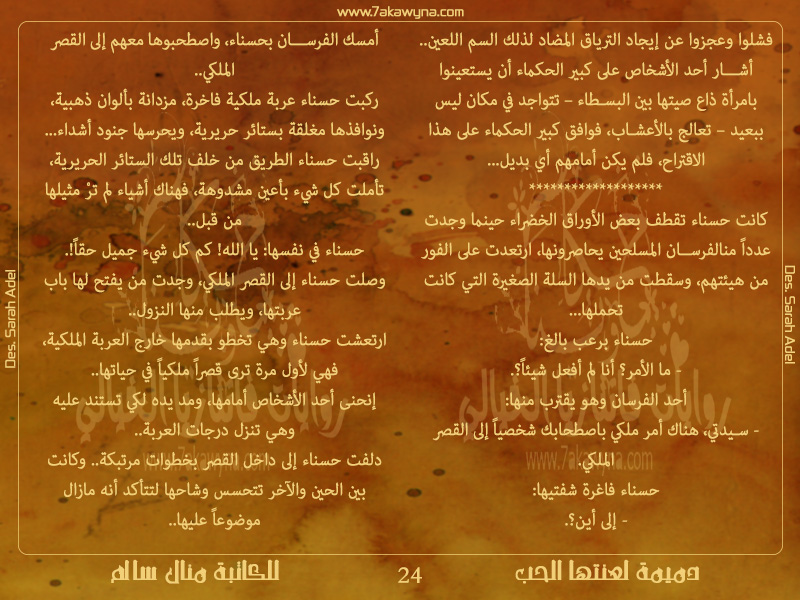 www.7akawyna.com
فشلوا وعجزوا عن إيجاد الترياق المضاد لذلك السم اللعين..
أشـــار أحد الأشخاص على كبير الحكماء أن يستعينوا
بامرأة ذاع صيتها بين البسـطاء – تتواجد في مكان ليس
ببعيد – تعالج بالأعشـاب، فوافق كبير الحكماء على هذا
الاقتراح، فلم يكن أمامهم أي بديل...
*******************
كانت حسناء تقطف بعض الأوراق الخضراء حينما وجدت
عدداً منالفرســـان المسلحين يحاصرونها، ارتعدت على الفور
من هيئتهم، وسقطت من يدها السلة الصغيرة التي كانت
تحملها...
حسناء برعب بالغ:
- ما الأمر؟ أنا لم أفعل شيئاً؟.
أحد الفرسان وهو يقترب منها:
- سـيدتي، هناك أمر ملكي باصطحابك شخصياً إلى القصر
الملكي.
حسناء فاغرة شفتيها:
- إلى أين؟.
أمسك الفرســـان بحسناء، واصطحبوها معهم إلى القصر
الملكي..
ركبت حسناء عربة ملكية فاخرة، مزدانة بألوان ذهبية،
ونوافذها مغلقة بستائر حريرية، ويحرسها جنود أشداء...
راقبت حسناء الطريق من خلف تلك الستائر الحريرية،
تأملت كل شيء بأعين مشدوهة، فهناك أشياء لم ترْ مثيلها
من قبل..
حسناء في نفسها: يا الله! كم كل شيء جميل حقاً!.
وصلت حسناء إلى القصر الملكي، وجدت من يفتح لها باب
عربتها، ويطلب منها النزول..
ارتعشت حسناء وهي تخطو بقدمها خارج العربة الملكية،
فهي لأول مرة ترى قصراً ملكياً في حياتها..
إنحنى أحد الأشخاص أمامها، ومد يده لكي تستند عليه
وهي تنزل درجات العربة..
دلفت حسناء إلى داخل القصر بخطوات مرتبكة.. وكانت
بين الحين والآخر تتحسس وشاحها لتتأكد أنه مازال
موضوعاً عليها..
Des. Sarah Adel
Des. Sarah Adel
روايات فانتازيا الخيالي
www.7akawyna.com
روايات فانتازيا الخيالي
www.7akawyna.com
دميمة لعنتها الحب
24
للكاتبة منال سالم